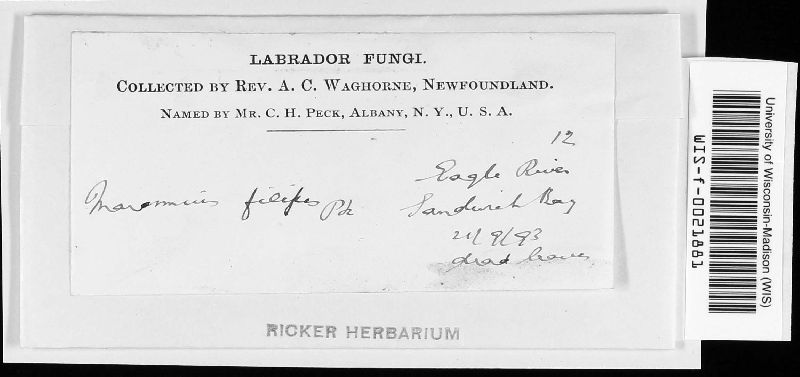 LABRADOR FUNGI.
COLLECTED BY REV. A. C. WAGHORNE, NEWFOUNDLAND.
NAMED BY MR. C. H. PECK, ALBANY, N. Y., U. S. A.
12
Marasmius filipes Pk
Eagle River
Sandwich Bay
21/9/93
dead leaves
RICKER HERBARIUM
University of Wisconsin-Madison (WIS)
WIS-f-0021881